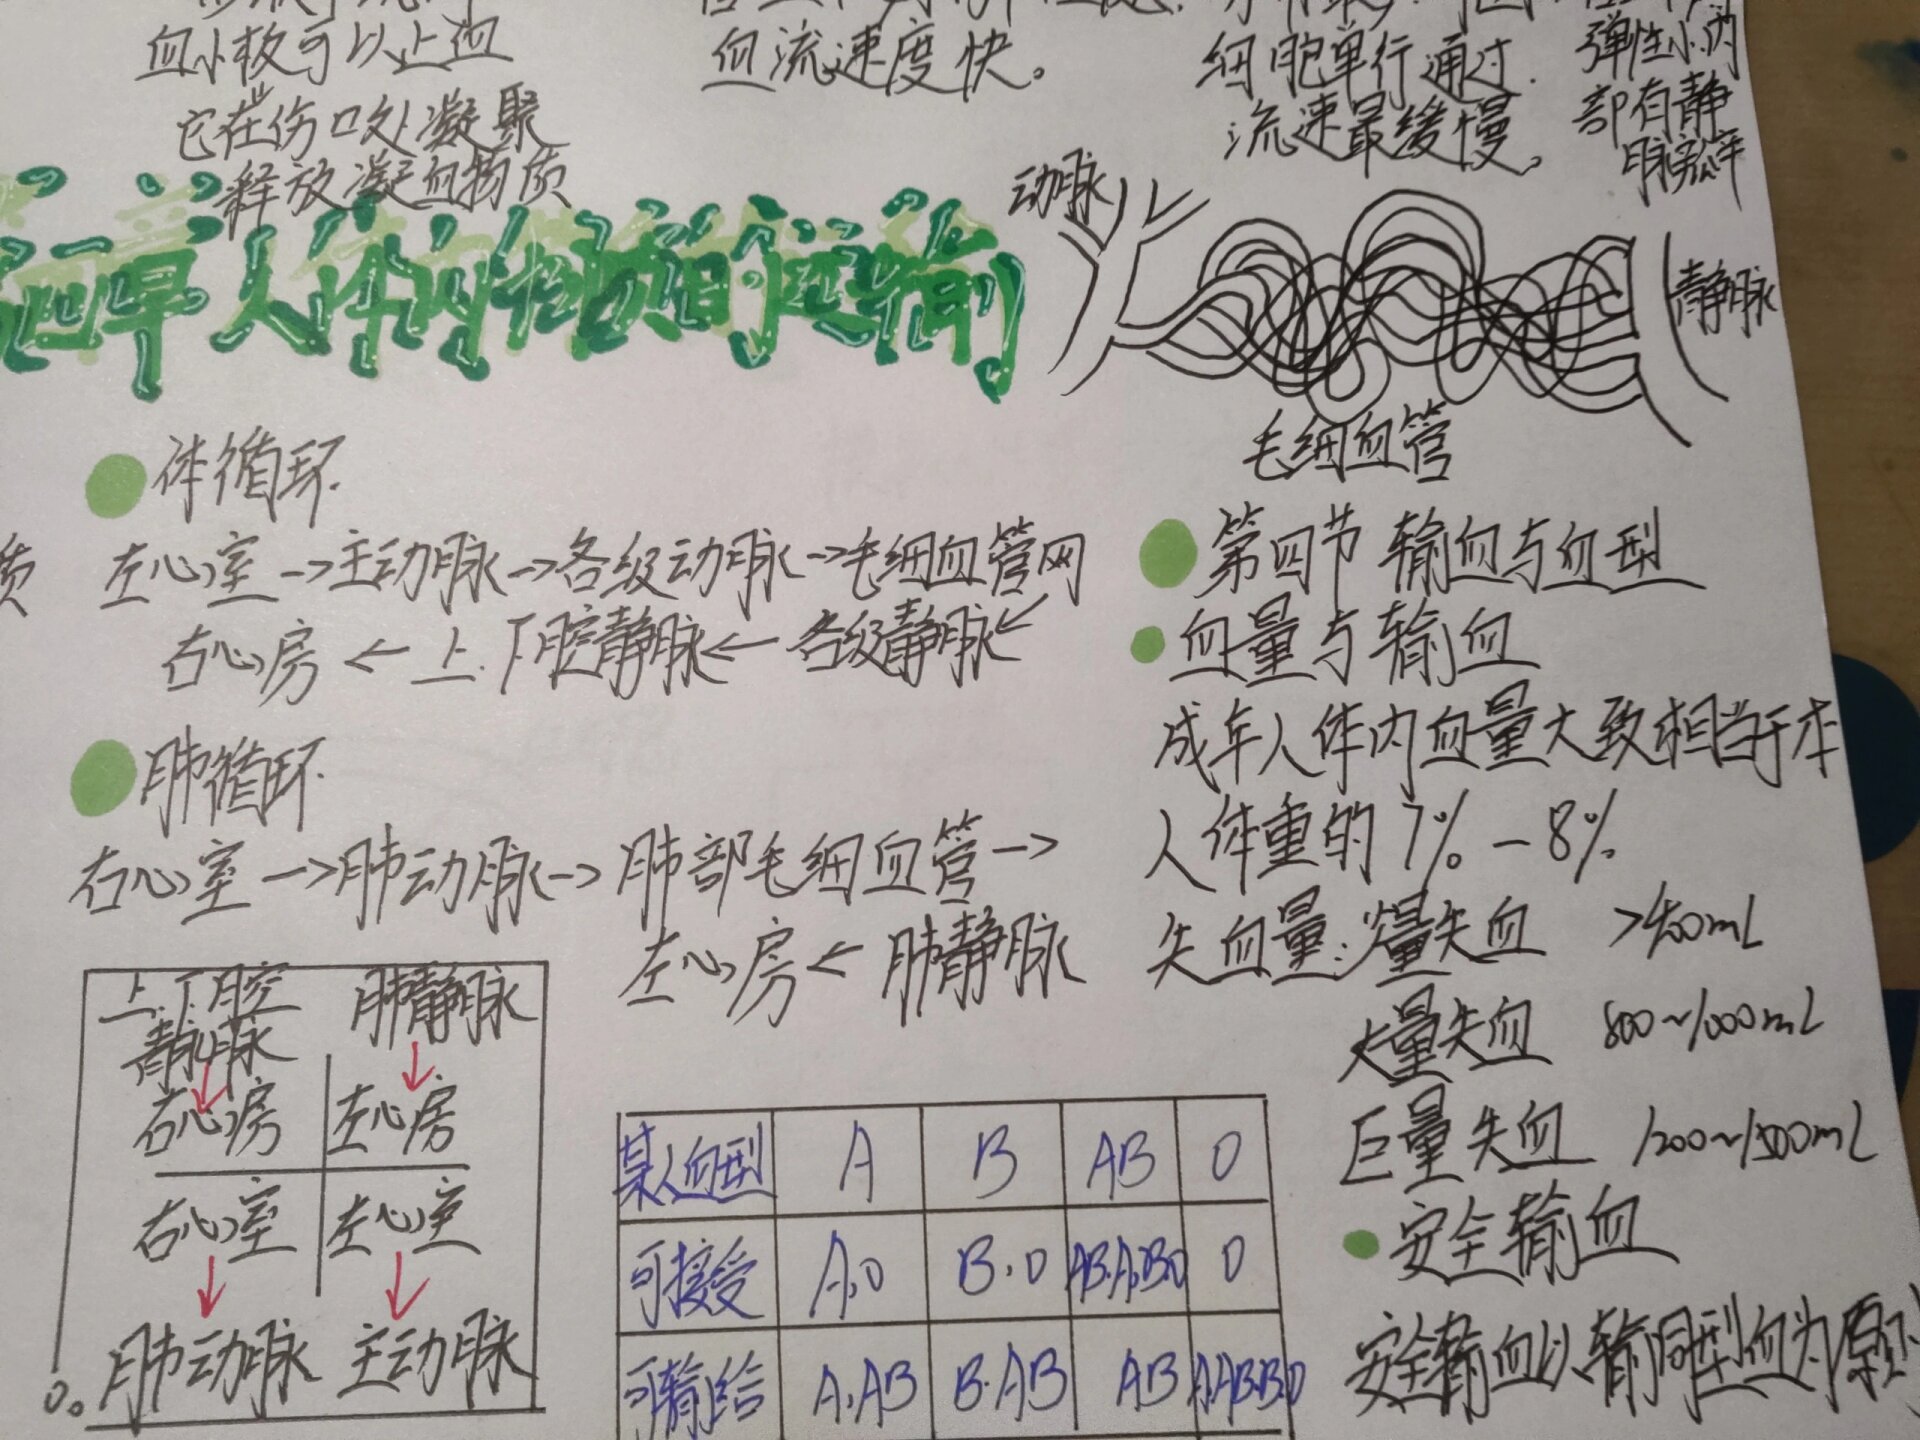 血小板可以止血
它在伤口处凝聚
释放凝血物质
血流速度快。
细胞单行通过.
流速最缓慢。
弹性小.内
部有静
脉瓣
第四章 人体内物质的运输
动脉
静脉
毛细血管
体循环.
左心室→主动脉→各级动脉→毛细血管网
右心房←上.下腔静脉←各级静脉
肺循环.
右心室→肺动脉→肺部毛细血管→
左心房←肺静脉
质
上.下腔
静脉
肺静脉
右心房 左心房
右心室 左心室
肺动脉 主动脉
某人血型 A B AB O
可接受 A,O B.O AB.A,B,O O
可输给 A,AB B.AB AB A,AB.B.O
第四节 输血与血型
血量与输血
成年人体内血量大致相当于本
人体重的7%-8%
失血量:少量失血 >400mL
大量失血 800~1000mL
巨量失血 1200~1500mL
安全输血
安全输血以输同型血为原则